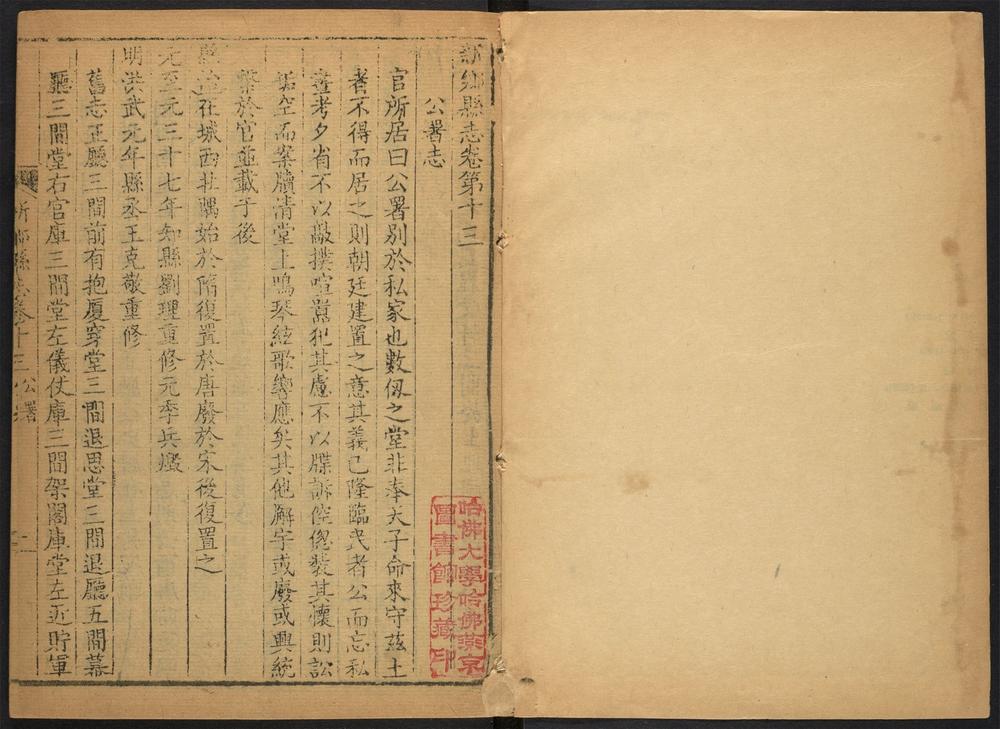 新鄉縣志卷第十三
公署志
官所居曰公署別於私家也數仭之堂非奉天子命來守茲土
者不得而居之則朝廷建置之意其義已隆臨民者公而忘私
晝考夕省不以敲撲喧嚣犯其慮不以牒訴倥傯裝其懷則訟
庭空而案牘清堂上鳴琴絃歌響應矣其他廨宇或廢或興統
繫於官並載于後
縣治在城西北隅始於隋復置於唐廢於宋後復置之
元至元三十七年知縣劉理重修元季兵燬
明洪武元年縣丞王克敬重修
舊志正廳三間前有抱厦穿堂三間退思堂三間退廳五間幕
廳三間堂右官庫三間堂左儀仗庫三間架閣庫堂左近貯軍
新鄉縣志卷十三 公署 一
哈佛大學哈佛燕京
圖書館珍藏印